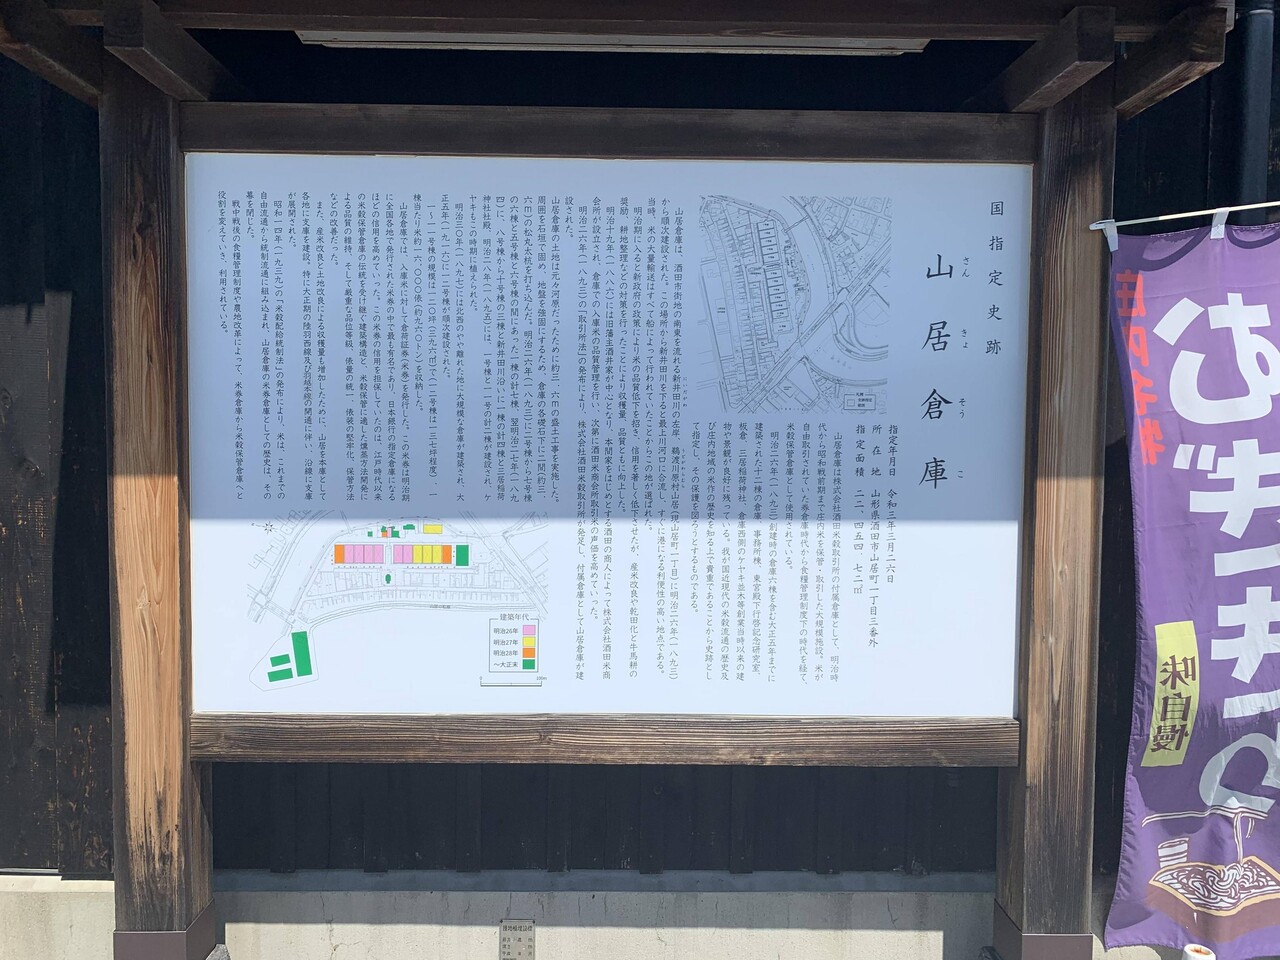 国指定史跡
山居倉庫
さんきょそうこ
指定年月日　令和三年三月二六日
所在地　山形県酒田市山居町一丁目三番外
指定面積　二二、四五四．七二㎡
山居倉庫は株式会社酒田米穀取引所の付属倉庫として、明治時
代から昭和戦前期まで庄内米を保管・取引した大規模施設。米が
自由取引されていた券倉庫時代から食糧管理制度下の時代を経て、
米穀保管倉庫として使用されている。
明治二六年（一八九三）創建時の倉庫六棟を含む大正五年までに
建築された十二棟の倉庫、事務所棟、東宮殿下行啓記念研究室、
板倉、三居稲荷神社、倉庫西側のケヤキ並木等創業当時以来の建
物や景観が良好に残っている。我が国近現代の米穀流通の歴史及
び庄内地域の米作の歴史を知る上で貴重であることから史跡とし
て指定し、その保護を図ろうとするものである。
山居倉庫は、酒田市街地の南東を流れる新井田川の左岸、鵜渡川原村山居（現山居町一丁目）に明治二六年（一八九三）
から順次建設された。この場所から新井田川を下ると最上川河口に合流し、すぐに港になる利便性の高い地点である。
当時、米の大量輸送はすべて船によって行われていたことからこの地が選ばれた。
明治期に入ると新政府の政策により米の品質低下を招き、信用を著しく低下させたが、産米改良や乾田化と牛馬耕の
奨励、耕地整理などの対策を行ったことにより収穫量、品質ともに向上した。
明治十九年（一八八六）には旧藩主酒井家が中心となり、本間家をはじめとする酒田の商人によって株式会社酒田米商
会所が設立され、倉庫での入庫米の品質管理を行い、次第に酒田米商会所取引米の声価を高めていった。
明治二六年（一八九三）の「取引所法」の発布により、株式会社酒田米穀取引所が発足し、付属倉庫として山居倉庫が建
設された。
山居倉庫の土地は元々河原だったために約三．六ｍの盛土工事を実施した。
周囲を石垣で固め、地盤を強固にするため、倉庫の各礎石下に二間（約三．
六ｍ）の松丸太杭を打ち込んだ。明治二六年（一八九三）に二号棟から七号棟
の六棟と五号棟と六号棟の間にあった一棟の計七棟、翌明治二七年（一八九
四）に、八号棟から十号棟の三棟と新井田川沿いに一棟の計四棟と三居稲荷
神社社殿、明治二八年（一八九五）には、一号棟と一一号の計二棟が建設され、ケ
ヤキもこの時期に植えられた。
明治三〇年（一八九七）には北西のやや離れた地に大規模な倉庫が建築され、大
正五年（一九一六）に一二号棟が順次建設された。
一～一一号棟の規模は一二〇坪（三九六㎡）で（一二号棟は一三七坪程度）、一
棟当たり米約一六、〇〇〇俵（約九六〇トン）を収納した。
山居倉庫では、入庫米に対して倉荷証券（米券）を発行した。この米券は明治期
に全国各地で発行された米券の中で最も有名であり、日本銀行の指定倉庫になる
ほどの信用を高めていった。この米券の信用を担保していたのは、江戸時代以来
の米穀保管倉庫の伝統を受け継ぐ建築構造と、米穀保管に適した燻蒸方法開発に
よる品質の維持、そして厳重な品位等級、俵量の統一、俵装の堅牢化、保管方法
などの改善だった。
また、産米改良と土地改良による収穫量も増加したために、山居を本庫として
各地に支庫を建設。特に大正期の陸羽西線及び羽越本線の開通に伴い、沿線に支庫
が展開された。
昭和一四年（一九三九）の「米穀配給統制法」の発布により、米は、これまでの
自由流通から統制流通に組み込まれ、山居倉庫の米券倉庫としての歴史は、その
幕を閉じた。
戦中戦後の食糧管理制度や農地改革によって、米券倉庫から米穀保管倉庫へと
役割を変えていき、利用されている。
建築年代
明治26年
明治27年
明治28年
～大正末
0
100m
味自慢